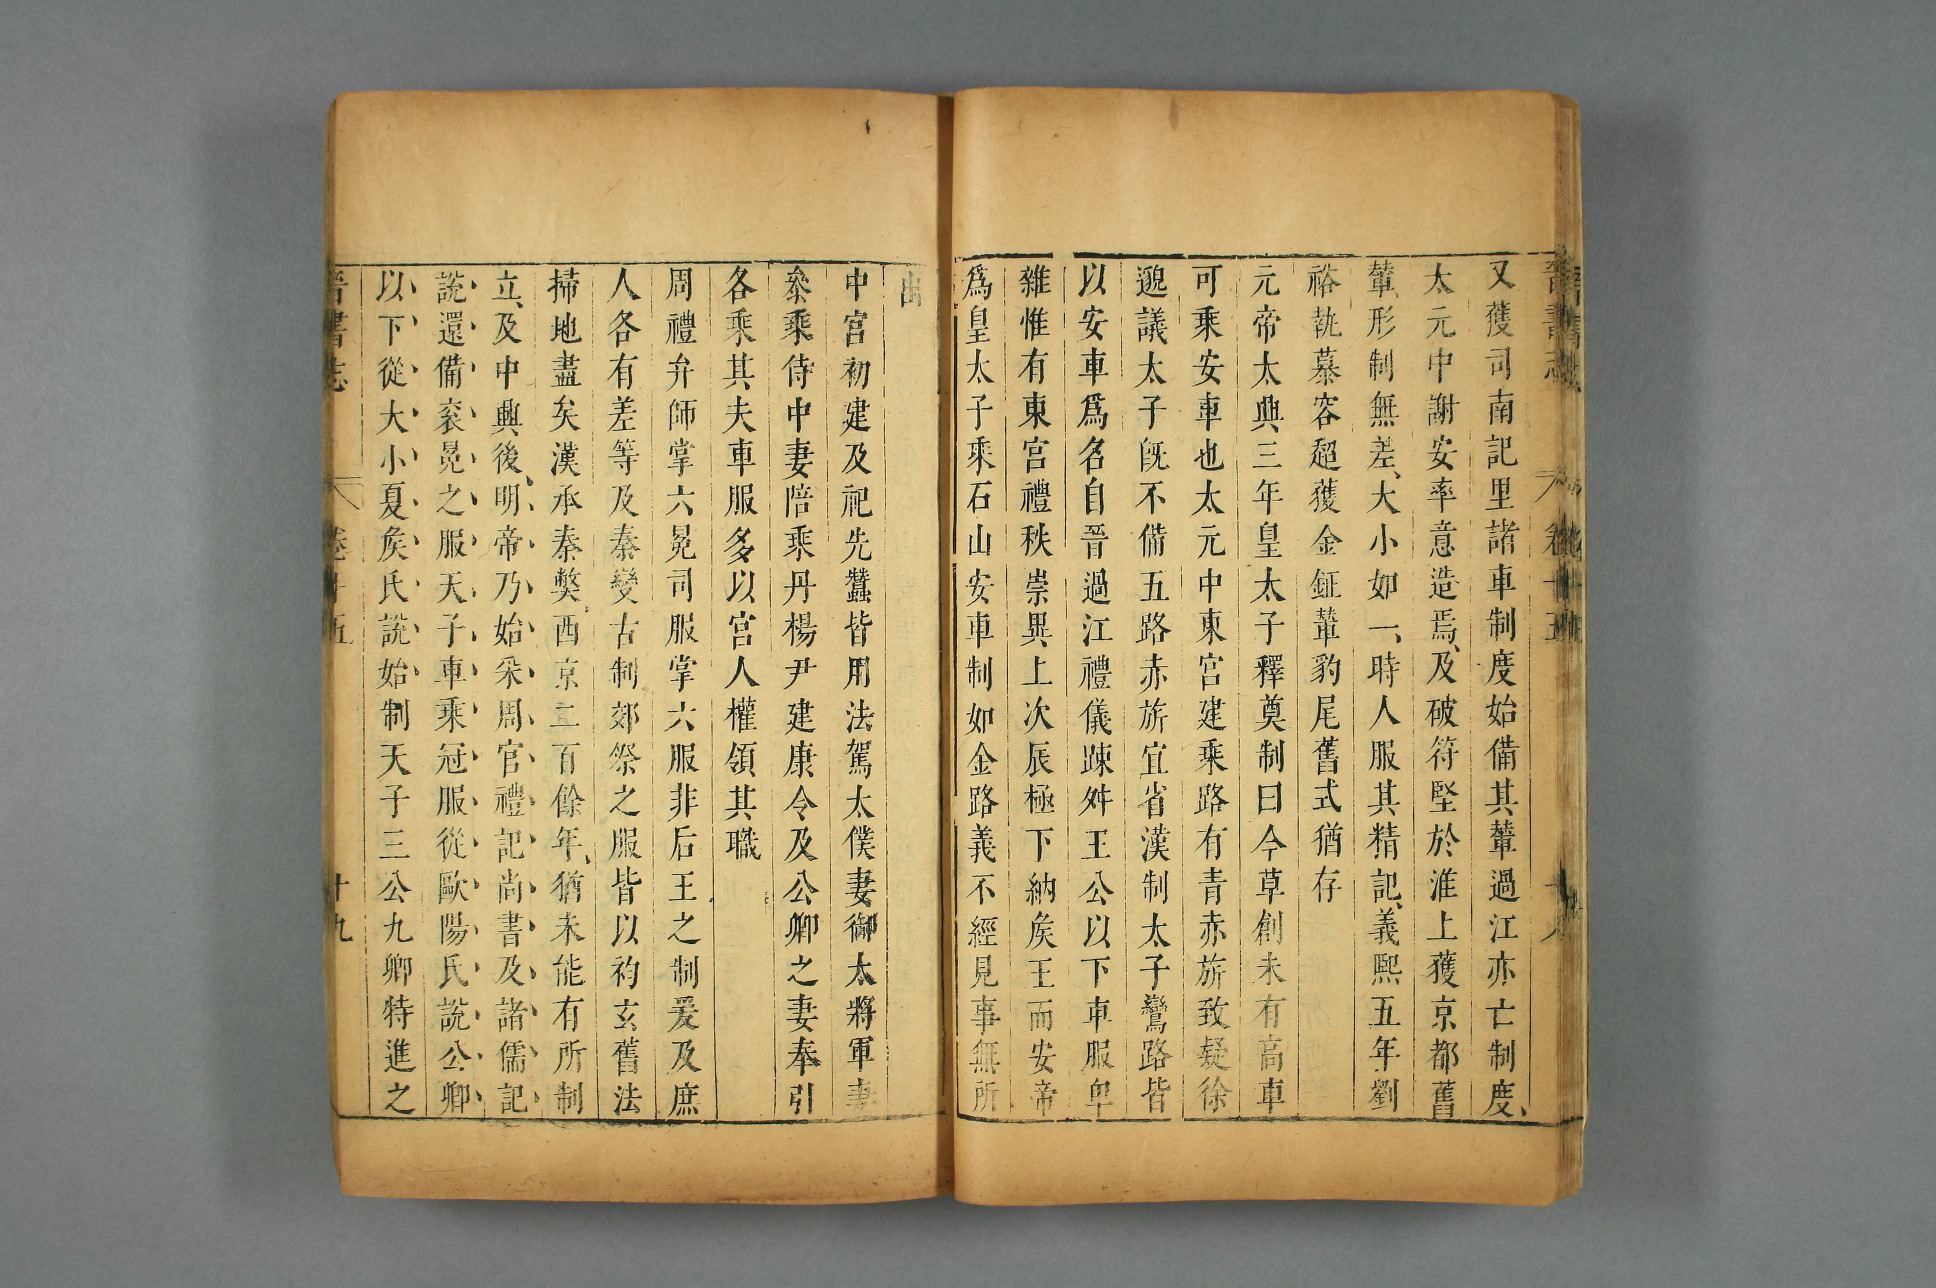 晉書志
卷十五
十八
又獲司南記里諸車制度始備其輦過江亦亡制度、
太元中謝安率意造焉、及破符堅於淮上獲京都舊
輦、形制無差、大小如一、時人服其精記、義熙五年劉
裕執慕容超獲金鉦輦豹尾舊式猶存
元帝太興三年皇太子釋奠制曰今草創未有高車
可乘安車也太元中東宮建乘路有青赤旂致疑徐
邈議太子旣不備五路赤旂宜省漢制太子鸞路皆
以安車爲名自晉過江禮儀踈舛王公以下車服卑
雜惟有東宮禮秩崇異上次辰極下納矦王而安帝
爲皇太子乘石山安車制如金路義不經見事無所
出
中宮初建及祀先蠶皆用法駕太僕妻御大將軍妻
叅乘侍中妻陪乘丹楊尹建康令及公卿之妻奉引
各乘其夫車服多以宮人權領其職
周禮弁師掌六冕司服掌六服非后王之制爰及庶
人各有差等及秦變古制郊祭之服皆以袀玄舊法
掃地盡矣漢承秦獘西京二百餘年、猶未能有所制
立、及中興後、明帝乃始采周官禮記尚書及諸儒記
說還備袞冕之服天子車乘冠服從歐陽氏說公卿
以下從大小夏矦氏說始制天子三公九卿特進之
晉書志
卷十五
十九